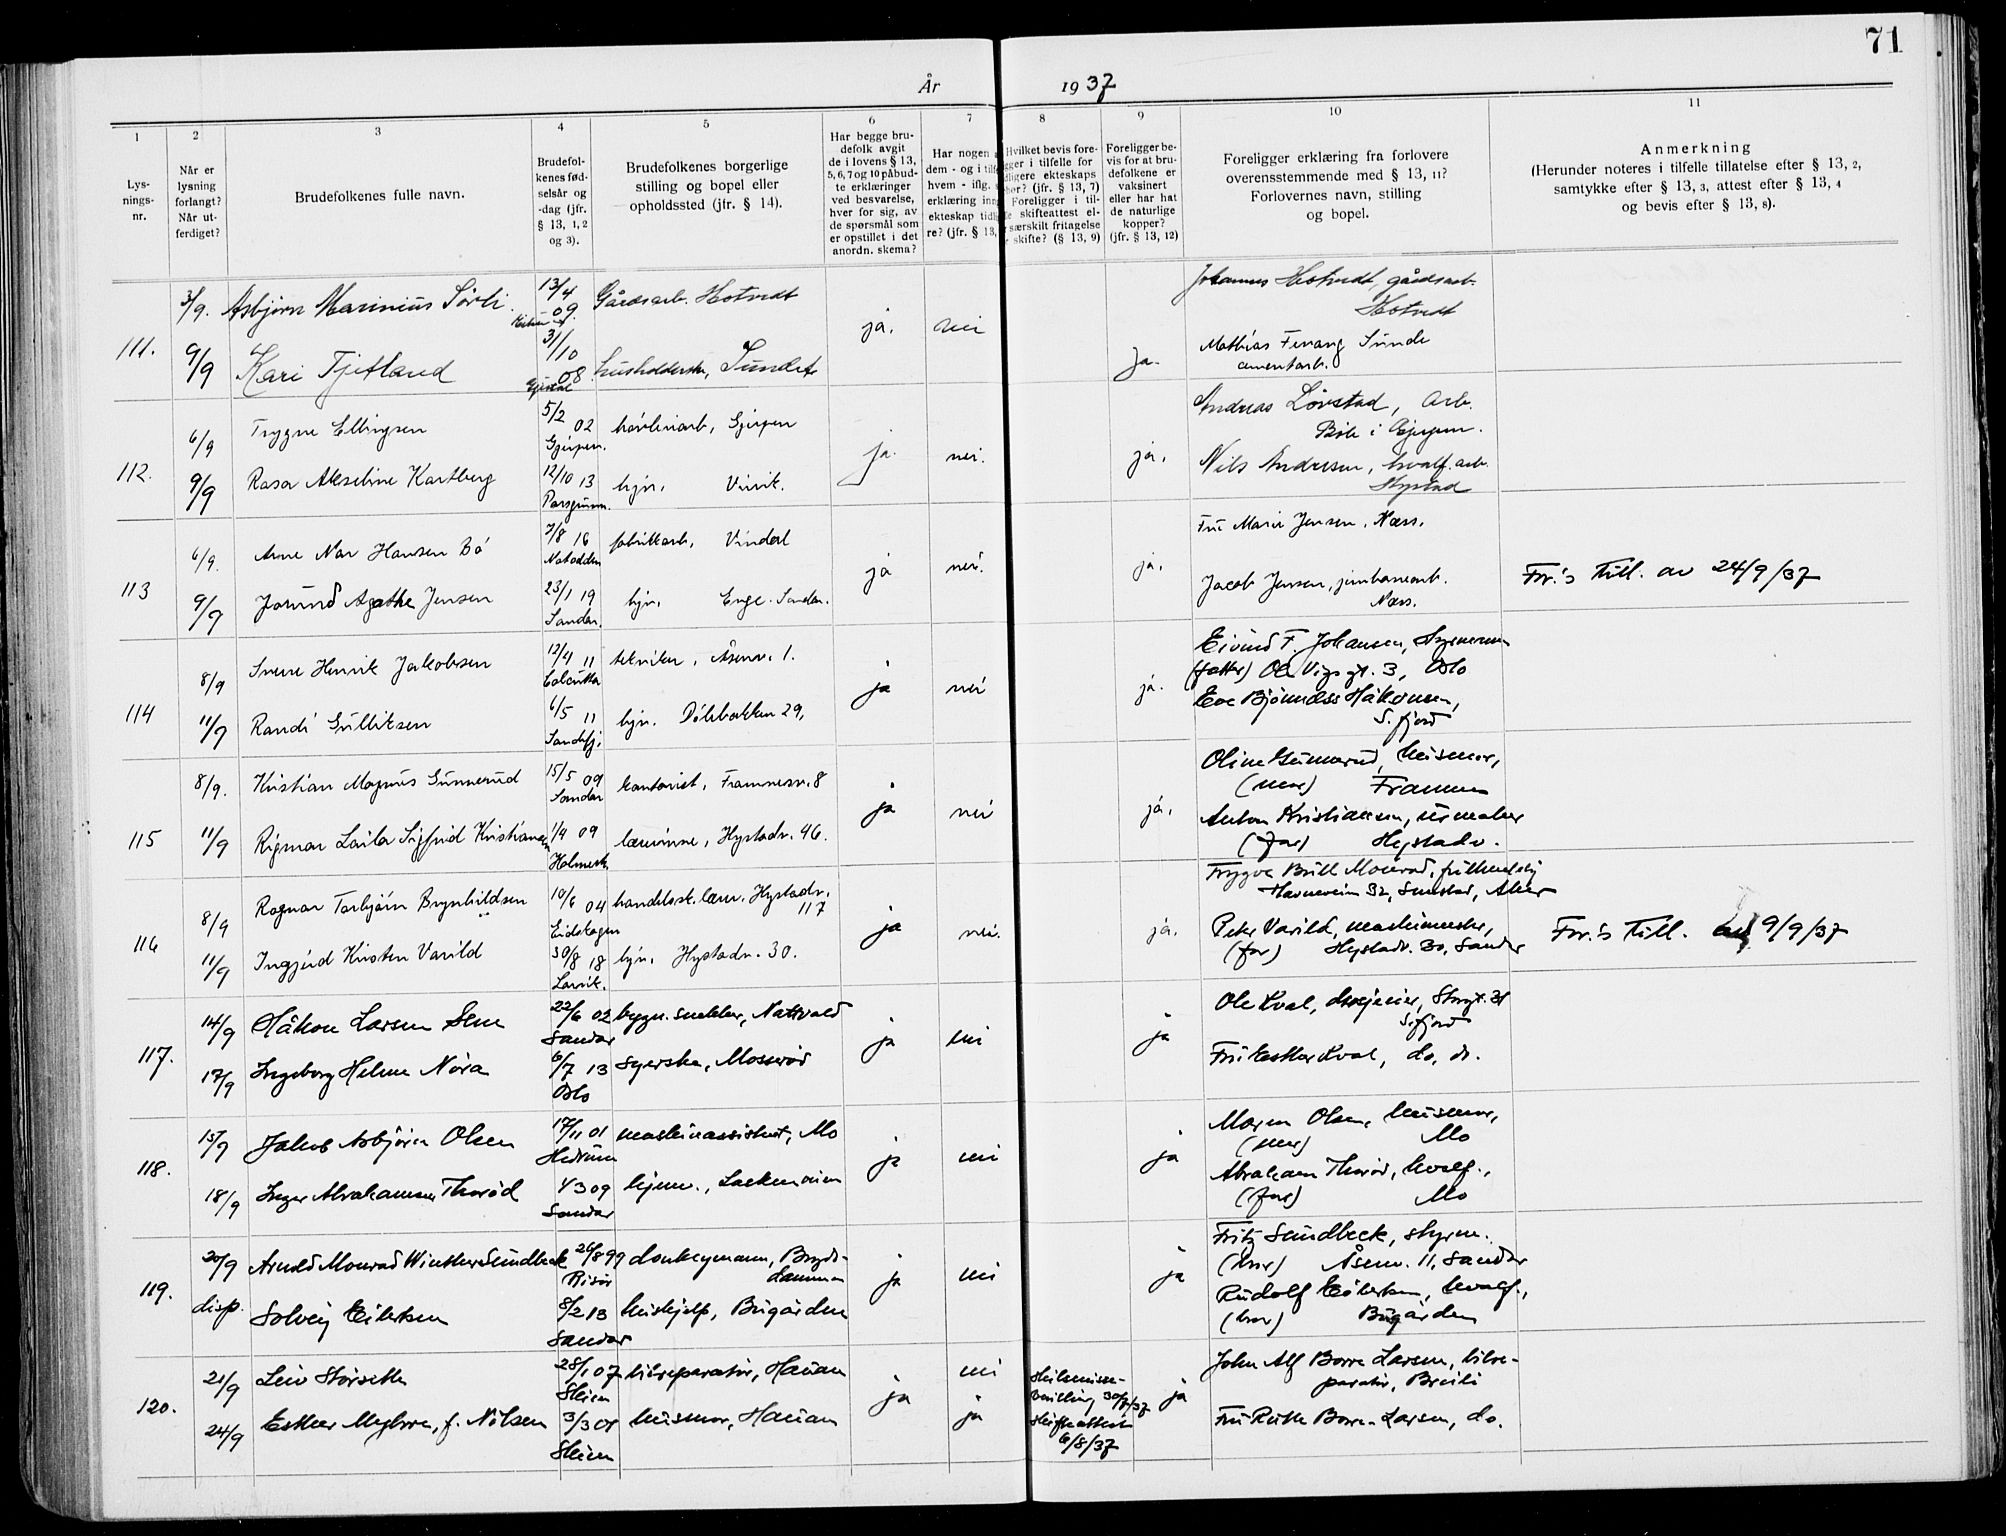 71
År 1937
1 2 3 4 5 6 7 8 9 10 11
Lys-
nings-
nr.
Når er
lysning
forlangt?
Når ut-
ferdiget?
Brudefolkenes fulle navn.
Brudefol-
kenes fød-
selsår og
-dag (jfr.
§ 13, 1, 2
og 3).
Brudefolkenes borgerlige
stilling og bopel eller
opholdssted (jfr. § 14).
Har begge bru-
defolk avgit
de i lovens § 13,
5, 6, 7 og 10 påbud-
te erklæringer
ved besvarelse,
hver for sig, av
de spørsmål som
er opstillet i det
anordn. skema?
Har nogen a
dem - og i tilfe
hvem - iflg. s
erklæring inng
ekteskap tidli
re? (jfr. § 13,
Hvilket bevis fore-
gger i tilfelle for
dligere ekteskaps
hør? (jfr. § 13, 7)
Foreligger i til-
le skifteattest el-
særskilt fritagelse
r skifte? (§ 13, 9)
Foreligger be-
vis for at bru-
defolkene er
vaksinert
eller har hat
de naturlige
kopper?
(jfr. § 13, 12)
Foreligger erklæring fra forlovere
overensstemmende med § 13, 11?
Forlovernes navn, stilling
og bopel.
Anmerkning
(Herunder noteres i tilfelle tillatelse efter § 13, 2,
samtykke efter § 13, 3, attest efter § 13, 4
og bevis efter § 13, 8).
111.
3/9. Asbjørn Marinius Sørli 13/4 09. Gårdsarb. Hotvedt
9/9 Kari Tjetland 31/10 08 husholderske, Sundet
ja. nei ja.
Johannes Hotvedt, gårdsarb.
Hotvedt
Mathias Fevang Sunde
112.
6/9 Trygve Ellingsen 5/2 02 Gjerpen
Gjerpen.
9/9 Rasa Akseline Kartberg 12/10 13 hjv., Virik.
Porsgrunn.
ja. nei. ja.
Andreas Lövstad, Arb.
Böle i Gjerpen.
Nils Andresen, hvalf. arb.
Hystad
113
6/9. Arne Nar Hansen Bö 7/8 16 fabrikkarb, Vindal
Notodden
9/9 Jorund Agathe Jensen 23/1 19 hjv. Enge. Sandar.
Sandar.
ja nei. ja.
Fru Marie Jensen, Næss.
Jacob Jensen, jernbanearb.
Næss.
For.'s Till. av 24/9/37
114
8/9 Sverre Henrik Jakobsen 12/4 11 tekniker, Åsenv. 1.
Calcutta
11/9 Randi Gulliksen 6/5 11 hjv. Dölebakken 29,
Sandefj.
ja nei ja.
Eivind F. Johansen,
Ole Vigs gt. 3, Oslo
Eva Bjönness Håkonsen,
S. fjord
115
8/9. Kristian Magnus Gunnerud 15/5 09 kontorist, Framnesv. 8
Sandar
11/9 Rigmor Laila Sigfrid Kristiansen 1/4 09 lærerinne, Hystadv. 46.
Holmestr.
ja nei ja.
Oline Gunnerud, husmor,
(mor) Framnes
Anton Kristiansen, urmaker
(far) Hystadv.
116
8/9 Ragnar Torbjörn Brynhildsen 10/6 04 handelssk.lærer. Hystadv.
117
Eidskogen
11/9 Ingjerd Kirsten Varild 30/8 18 hjv. Hystadv. 30.
Larvik.
ja nei. ja.
Trygve Brill Monrad,
Havneveien 32, Smestad, Aker
Peter Varild, maskinmester,
(far) Hystadv. 30, Sandar
For.'s Till. av 9/9/37
117.
14/9 Håkon Larsen Sem 22/6 02 bygn. snekker, Nattvald
Sandar
17/9 Ingeborg Helene Nöra 6/7 13 syerske, Mosserød
Oslo
ja nei ja
Ole Kval, drosjeeier, Storgt. 31
S. fjord
Fru Esther Kval, do. do.
118.
15/9 Jakob Asbjörn Olsen 17/11 01 maskinassistent, Mo
Hedrum
18/9 Inger Abrahamsen Thoröd 1/3 09 hjemv.,
Sandar
ja nei ja
Maren Olsen, husmor,
(mor) Mo
Abraham Thoröd, hvalf.,
(far) Mo
119.
20/9 Arnold Monrad Winther Sundbeck 26/8 99 donkeymann, Bryds-
dammen
Risör
disp. Solveig Eilertsen 8/2 13 hushjelp, Bugården
Sandar
ja nei ja
Fritz Sundbeck, styrm.
(bror) Åsenv. 11, Sandar
Rudolf Eilertsen, hvalf.,
(bror) Bugården
120.
21/9 Leiv Störseth 28/1 07 bilreparatör, Hauan
Skien
24/9 Esther Myhre, f. Nilsen 3/3 08 husmor, Hauan
Skien
ja nei
ja
Skilsmisse-
bevilling 30/7/37
Skifteattest
6/8/37
ja
John Alf Borre Larsen, bilre-
paratör, Breili
Fru Ruth Borre-Larsen, do.